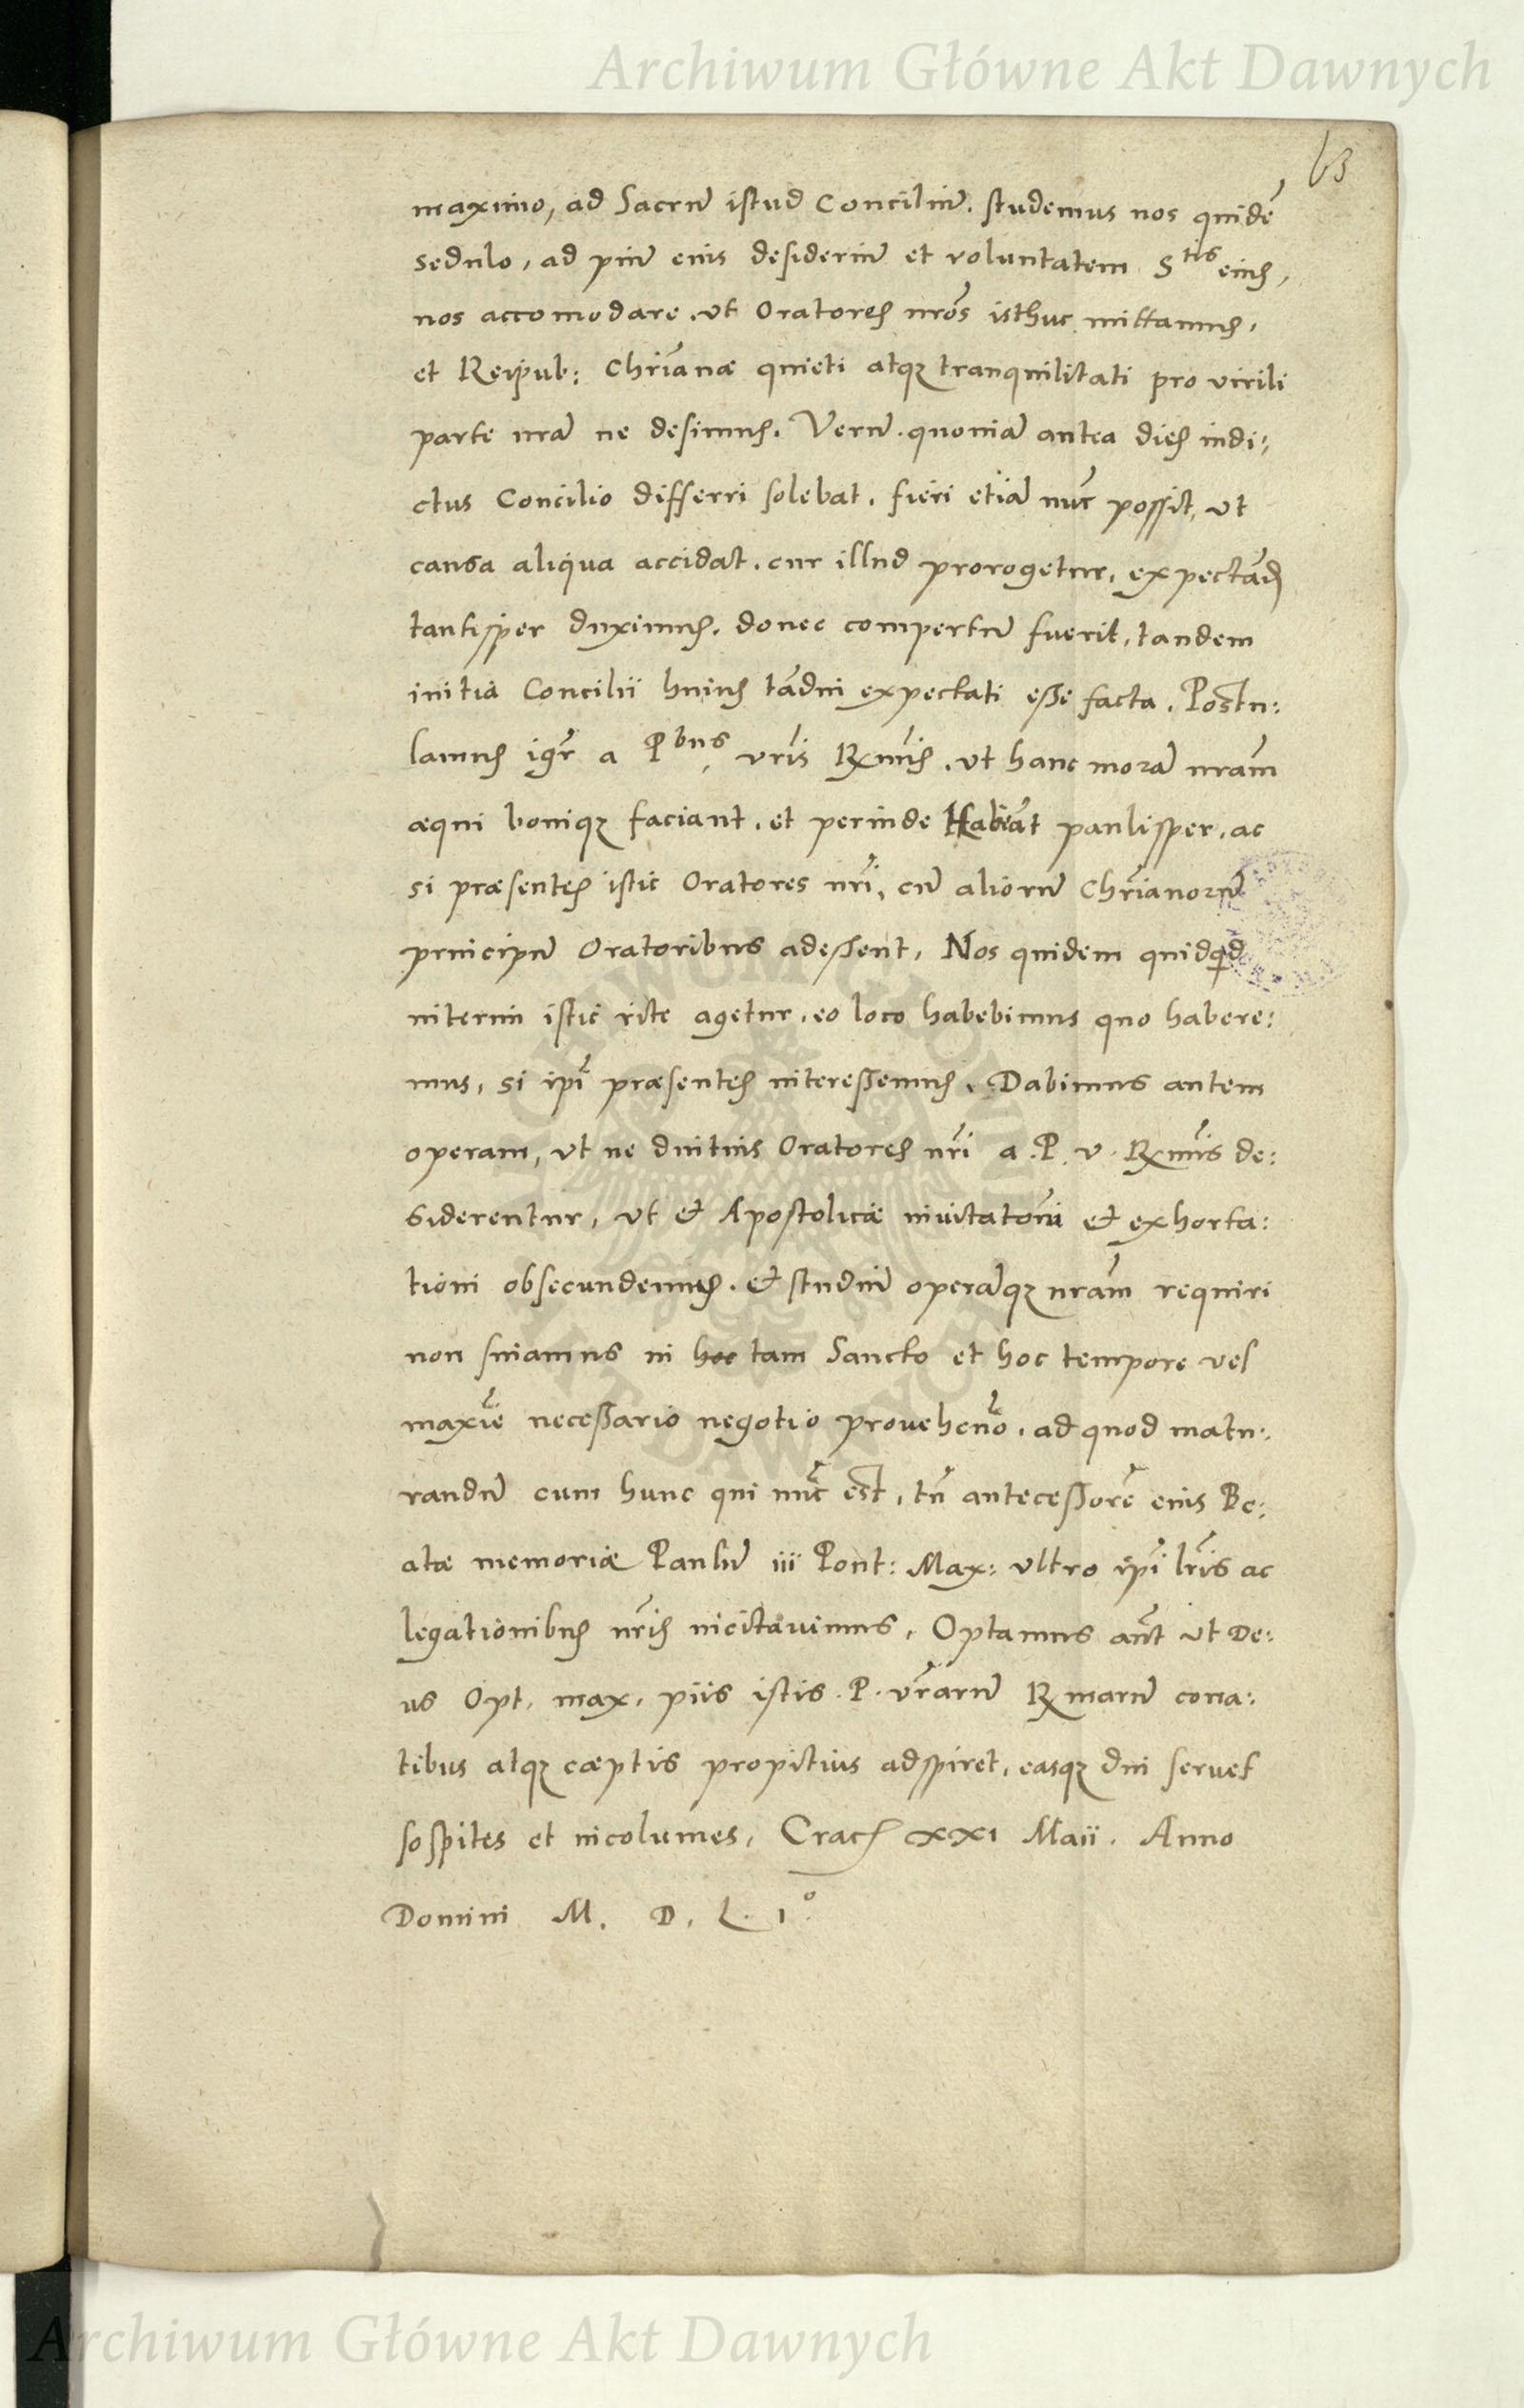 Archiwum Główne Akt Dawnych
63
maximo, ad Sacrũ istud Conciliũ. studemus nos quidẽ
sedulo, ad piũ eius desideriũ et voluntatem S^tis eius,
nos accomodare, ut Oratores nr̃os isthuc mittamus,
et Reipub: Chr̃ianæ quieti atq; tranquilitati pro virili
parte nrã ne desimus. Verũ. quoniã antea dies indi:
ctus Concilio differri solebat, fieri etiã nũc possit, ut
causa aliqua accidat, cur illud prorogetur, expectãd
tantisper duximus, donec compertũ fuerit, tandem
initia Concilii huius tãdiu expectati esse facta. Postu:
lamus igr̃ a P^bus, vr̃is Rx̃mis, ut hanc morã nrãm
æqui boniq; faciant, et perinde Habeãt paulisper, ac
si præsentes istic Oratores nr̃i, cũ aliorũ Chr̃ianorũ
principũ Oratoribus adessent, Nos quidem quidq̃d
interim istic rite agetur, eo loco habebimus quo habere:
mus, si ip̃i præsentes interessemus. Dabimus autem
operam, ut ne diutius Oratores nr̃i a. P. v. Rx̃mis de:
siderentur, ut et Apostolicæ invitationi et exhorta:
tioni obsecundemus, et studiũ operãq; nrãm requiri
non sinamus in hoc tam Sancto et hoc tempore vel
maxiẽ necessario negotio provehenõ, ad quod matu:
randũ cum hunc qui nũc est, tũ antecessorẽ eius Be:
atæ memoriæ Paulũ iii Pont: Max: ultro ip̃i lr̃is ac
legationibus nr̃is incitavimus, Optamus aũt ut De:
us Opt. max. piis istis P. vr̃arũ Rx̃marũ cona:
tibus atq; cæptis propitius adspiret, easq; diu servet
sospites et incolumes, Crac XXI Maii. Anno
Domini M. D. L. I^o.
Archiwum Główne Akt Dawnych